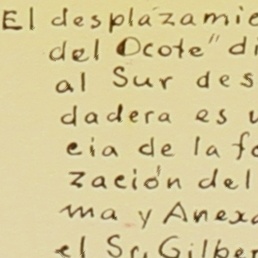 El desplazamie
del Ocote" di
al Sur des
dadera es
cia de la fo
zación del
ma y Anexo
el Sr. Gilber